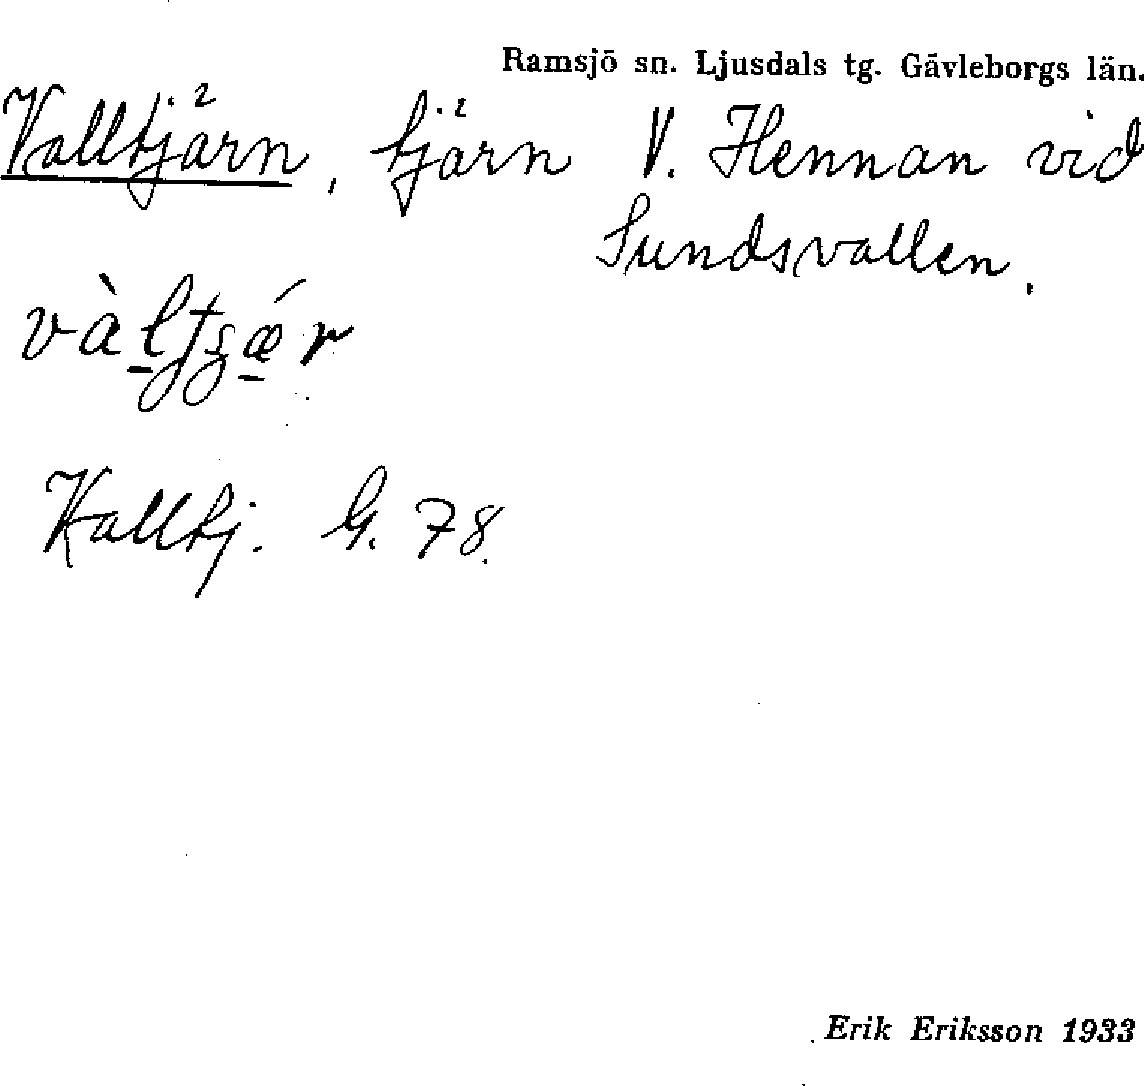 Ramsjö sn. Ljusdals tg. Gävleborgs län.
Valltjärn, tjärn V. Hennan vid
Sundsvallen.
Kalltj. G. 78.
Erik Eriksson 1933